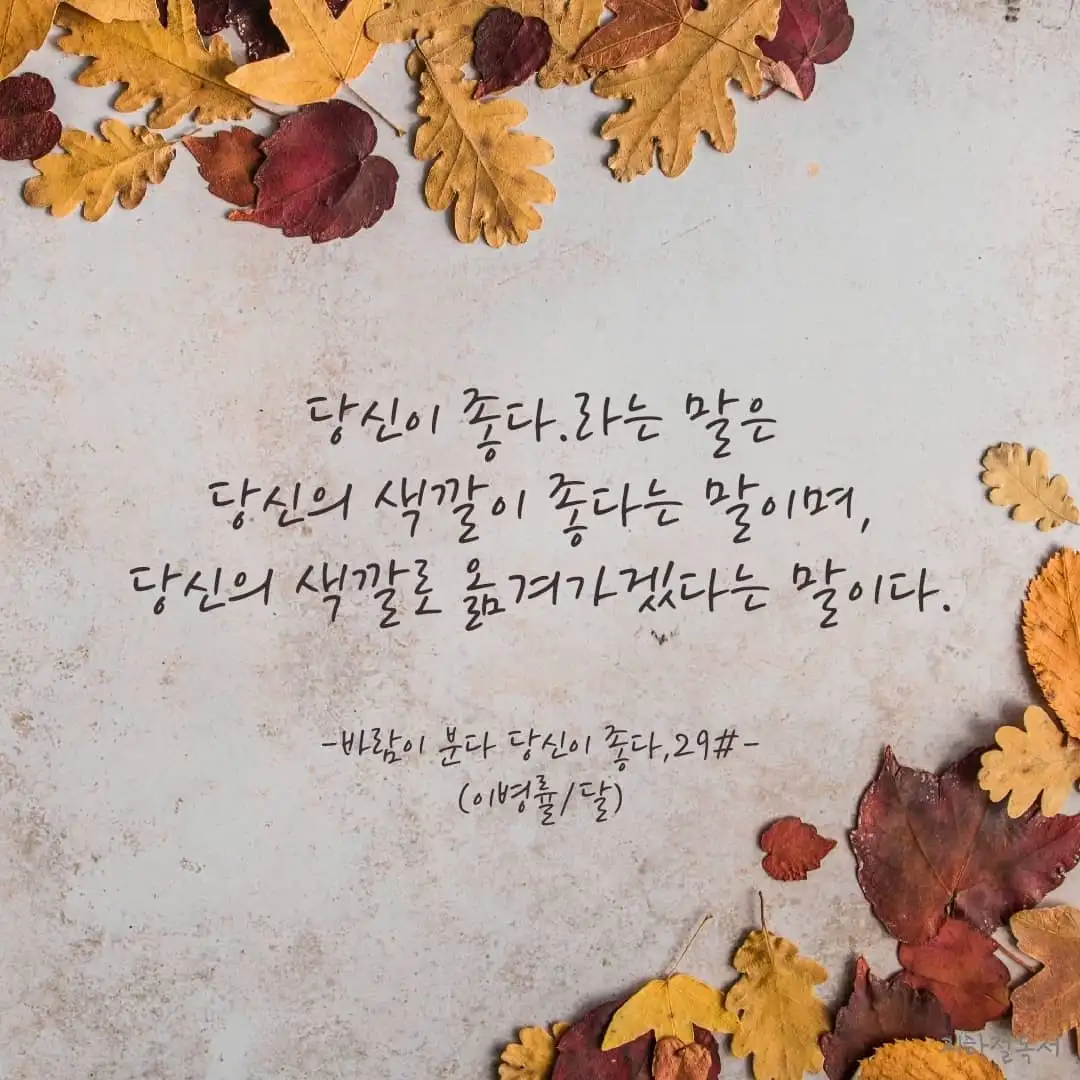 당신이 좋다.라는 말은
당신의 색깔이 좋다는 말이며,
당신의 색깔로 옮겨가겠다는 말이다.
-바람이 분다 당신이 좋다,29#-
(이병률/달)